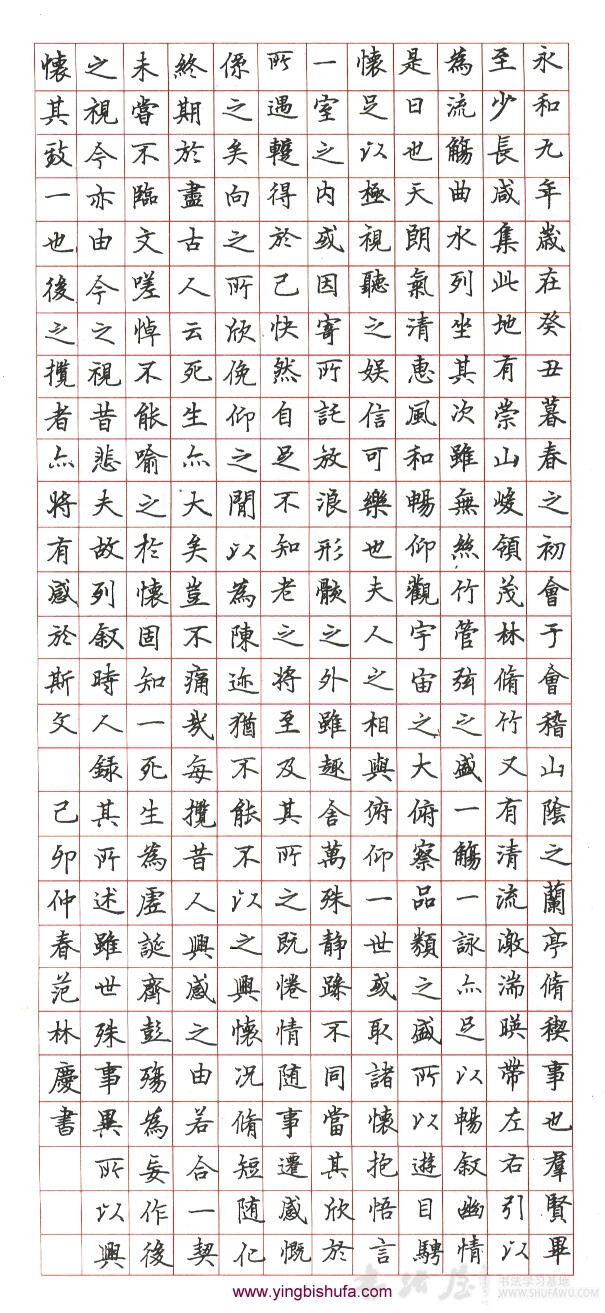 永和九年歲在癸丑暮春之初會于會稽山陰之蘭亭脩稧事也羣賢畢
至少長咸集此地有崇山峻領茂林脩竹又有清流激湍暎帶左右引以
為流觴曲水列坐其次雖無絲竹管弦之盛一觴一詠亦足以暢叙幽情
是日也天朗氣清惠風和暢仰觀宇宙之大俯察品類之盛所以遊目騁
懷足以極視聽之娛信可樂也夫人之相與俯仰一世或取諸懷抱悟言
一室之内或因寄所託放浪形骸之外雖趣舍萬殊静躁不同當其欣於
所遇蹔得於己快然自足不知老之將至及其所之既惓情随事遷感慨
係之矣向之所欣俛仰之閒以為陳迹猶不能不以之興懷況脩短随化
終期於盡古人云死生亦大矣豈不痛哉每攬昔人興感之由若合一契
未嘗不臨文嗟悼不能喻之於懷固知一死生為虛誕齊彭殤為妄作後
之視今亦由今之視昔悲夫故列叙時人録其所述雖世殊事異所以興
懷其致一也後之攬者亦將有感於斯文 己卯仲春范林慶書
书法屋
书法学习基地
WWW.SHUFAWU.COM
www.yingbishufa.com